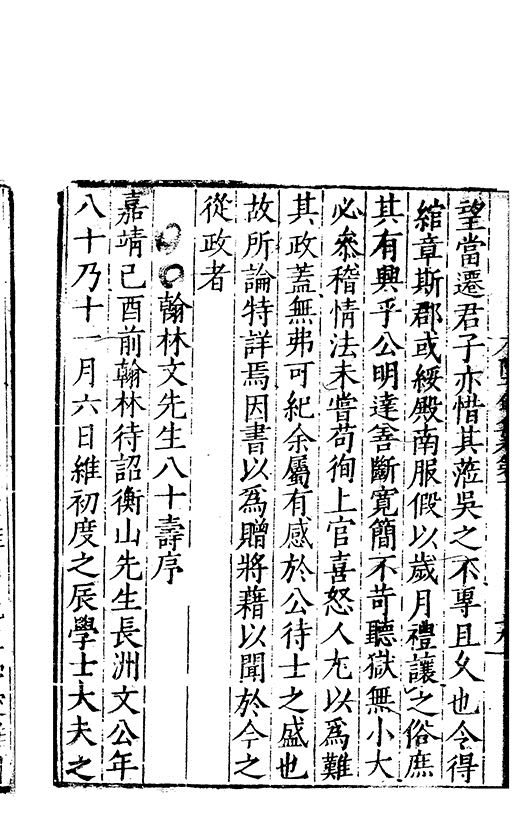 望當遷君子亦惜其蒞吳之不專且久也今得
綰章斯郡或綏殿南服假以歲月禮讓之俗庶
其有興乎公明達善斷寬簡不苛聽獄無小大
必叅稽情法未嘗苟徇上官喜怒人尤以爲難
其政蓋無弗可紀余屬有感於公待士之盛也
故所論特詳焉因書以爲贈將藉以聞於今之
從政者
翰林文先生八十壽序
嘉靖己酉前翰林待詔衡山先生長洲文公年
八十乃十一月六日維初度之辰學士大夫之